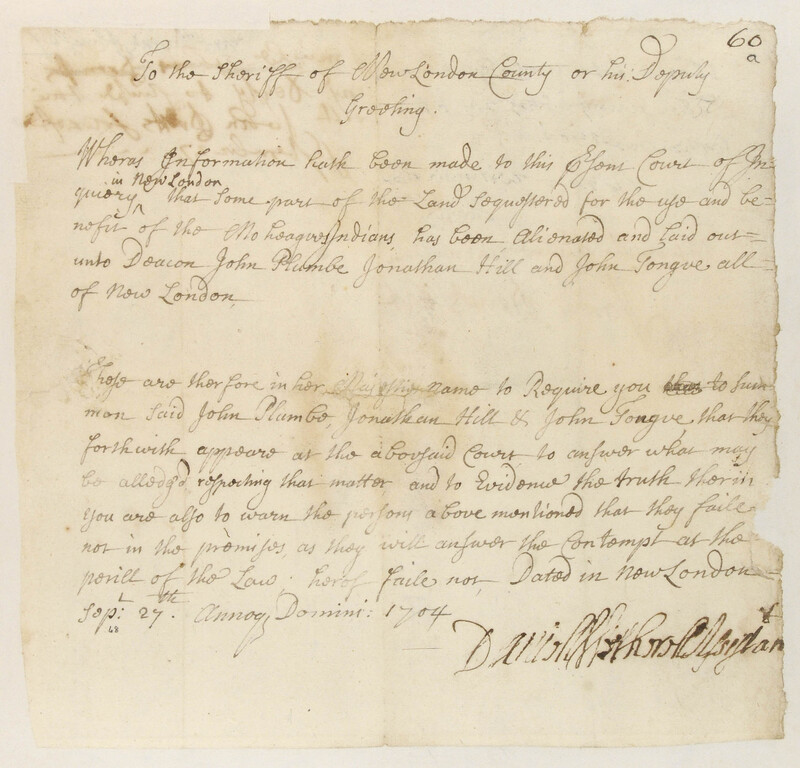 60
a
To the Sheriff of New London County or his Deputy
Greeting.
Wheras Information hath been made to this Esent Court of In-
in New London
quiery ^ that some part of the Land sequestered for the use and be-
nefit of the Moheagues Indians, has been Alienated and laid out=
unto Deacon John Plumbe Jonathan Hill and John Tongue all=
of New London,
These are therfore in her name to Require you to Sum
mon said John Plumbe, Jonathan Hill & John Tongue that they
forthwith appeare at the abovsaid Court to answer what may
be alledgd, respecting that matter and to Evidence the truth therin
You are also to warn the persons above mentioned that they faile
not in the premises, as they will answer the Contempt at the
perill of the Law: herof faile not, Dated in New London
Sept: 27th. Annoq Domini: 1704